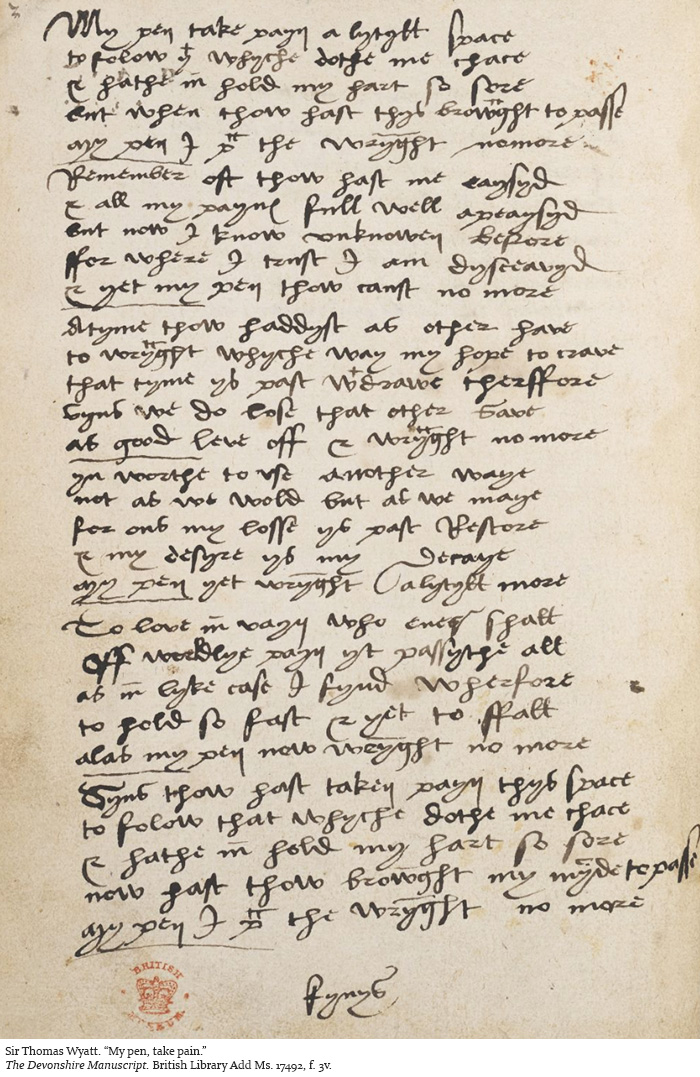 My pen take payn a lytyll space
to folow yt whyche dothe me chace
& hathe in hold my hart so sore
but when thow hast thys browght to passe
my pen I prithe wryght nomore
Remember oft thow hast me eaysyd
& all my paynes full well apeaysyd
but now I know unknowen before
ffor where I trust I am dysceavyd
& yet my pen thow canst no more
A tyme thow haddyst as other have
to wryght whyche way my hope to crave
that tyme ys past wtdrawe therffore
Syns we do lose that other save
as good leve off & wryght no more
yn worthe to use another waye
not as we wold but as we maye
for ons my losse ys past Restore
& my desyre ys my decaye
my pen yet wryght a lytyll more
To love in vayn who ever shall
off worldlye payn yt passythe all
as in lyke case I fynd wherfore
to hold so fast & yet to ffall
alas my pen now wryght no more
Syns thow hast taken payn thys space
to folow that whyche dothe me chace
& hathe in hold my hart so sore
now hast thow browght my mynde to passe
my pen I prithe wryght no more
BRITISH MUSEUM
fynys
Sir Thomas Wyatt. “My pen, take pain.”
The Devonshire Manuscript. British Library Add Ms. 17492, f. 3v.